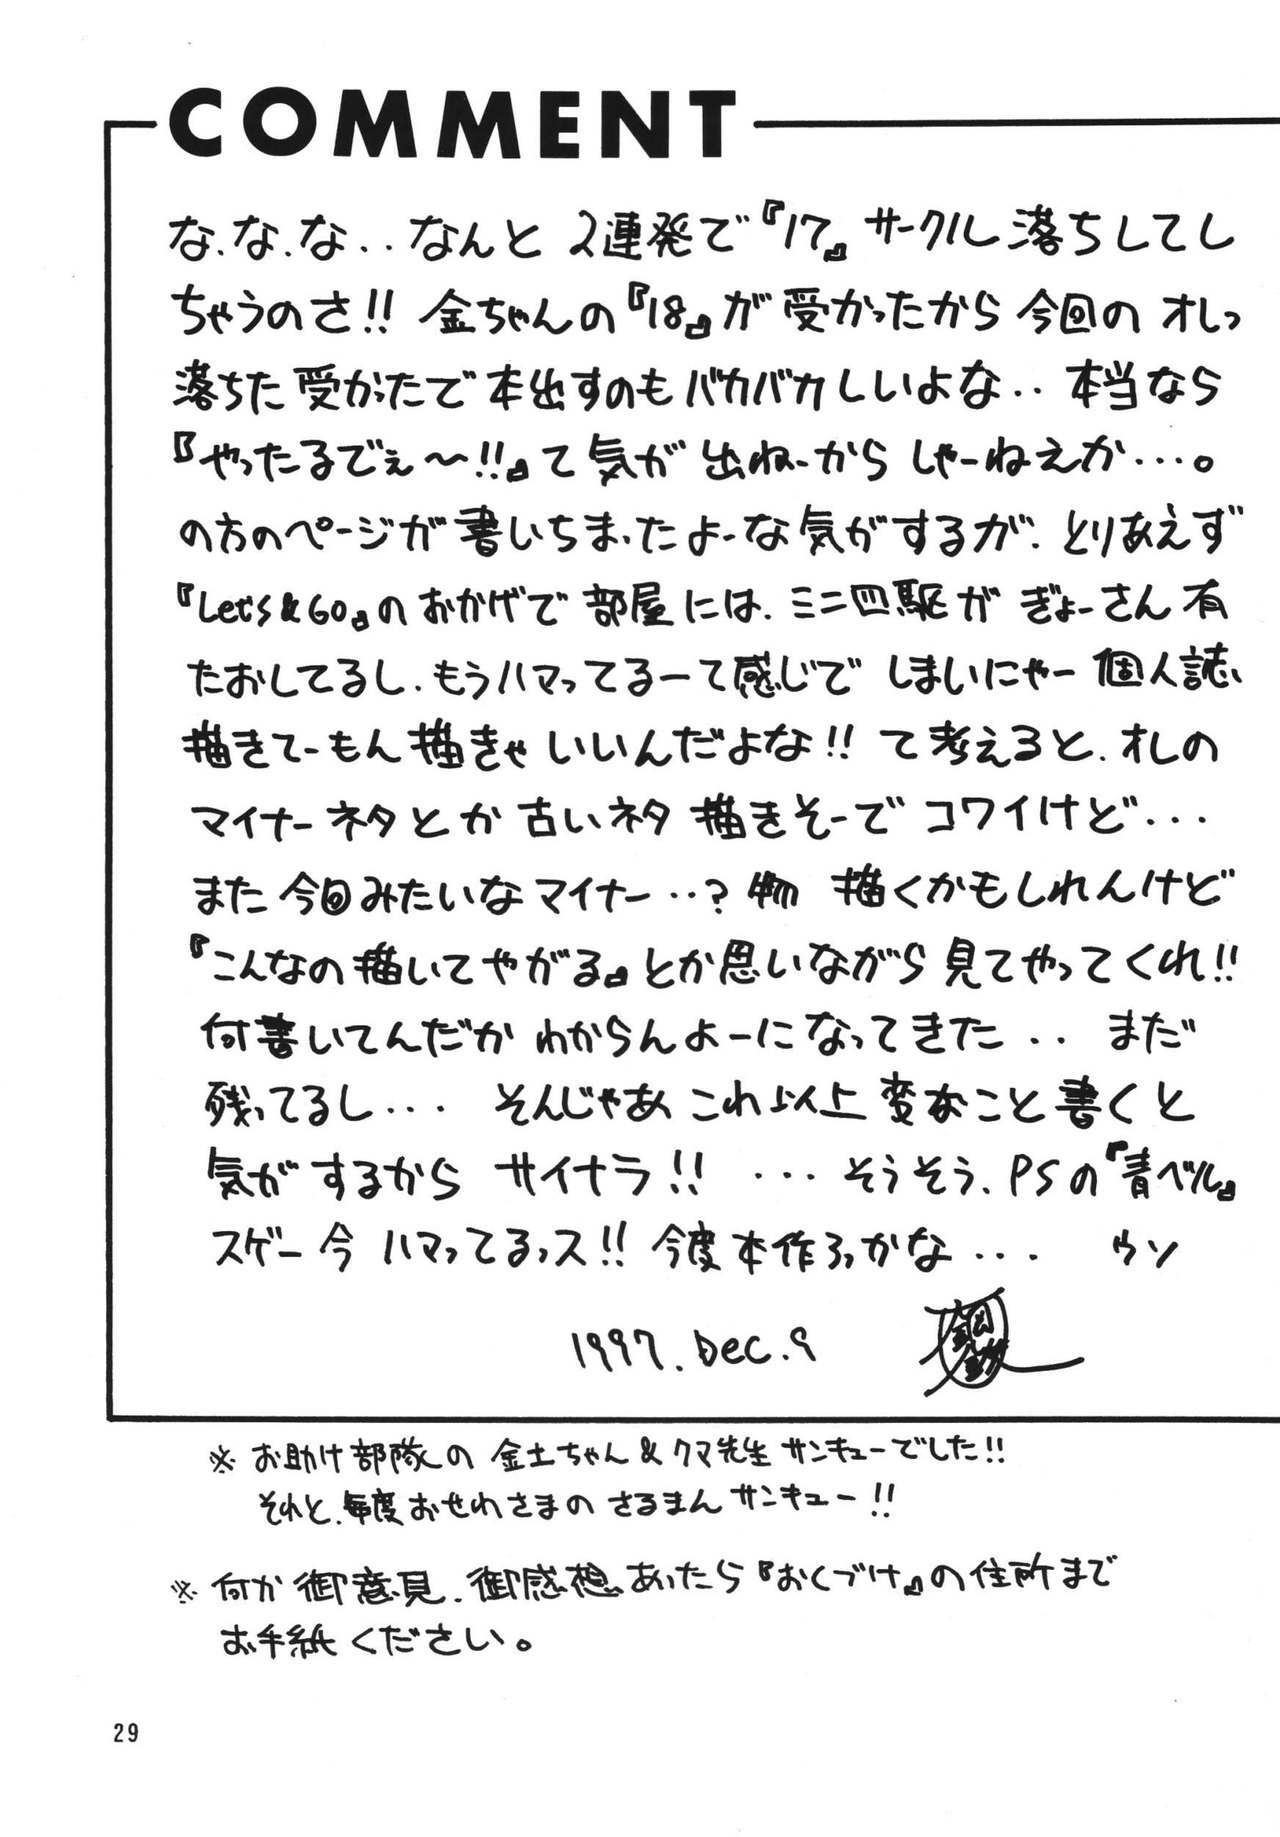 COMMENT
な、な、な‥なんと 2連発で『17』サークル落ちしてし
ちゃうのさ!! 金ちゃんの『18』が受かったから 今回の オレっ
落ちた 受かたで 本出すのも バカバカしいよな‥ 本当なら
『やったるでぇ〜!!』て 気が 出ねーから しゃーねえか…。
の方のページが 書いちまったよーな気がするが、とりあえず
『Let's & GO』の おかげで 部屋には、ミニ四駆が ぎょーさん 有
たおしてるし、もうハマってるーて感じで しまいにゃー 個人誌、
描きてーもん 描きゃ いいんだよな!! て考えると、オレの
マイナーネタとか 古いネタ 描きそーで コワイけど…
また 今回みたいな マイナー‥? 物 描くかもしれんけど
『こんなの描いてやがる』とか思いながら 見てやってくれ!!
何書いてんだか わからんよーになってきた‥ まだ
残ってるし… そんじゃあ これ以上 変なこと 書くと
気がするから サイナラ!! …そうそう、PSの『青ベル』
スゲー 今 ハマってるっス!! 今度 本作ろっかな… ウソ
1997. Dec. 9
※ お助け部隊の 金土ちゃん & クマ先生 サンキューでした!!
それと、毎度 おせわさまの さるまん サンキュー!!
※ 何か 御意見、御感想、あったら『おくづけ』の住所まで
お手紙 ください。
29